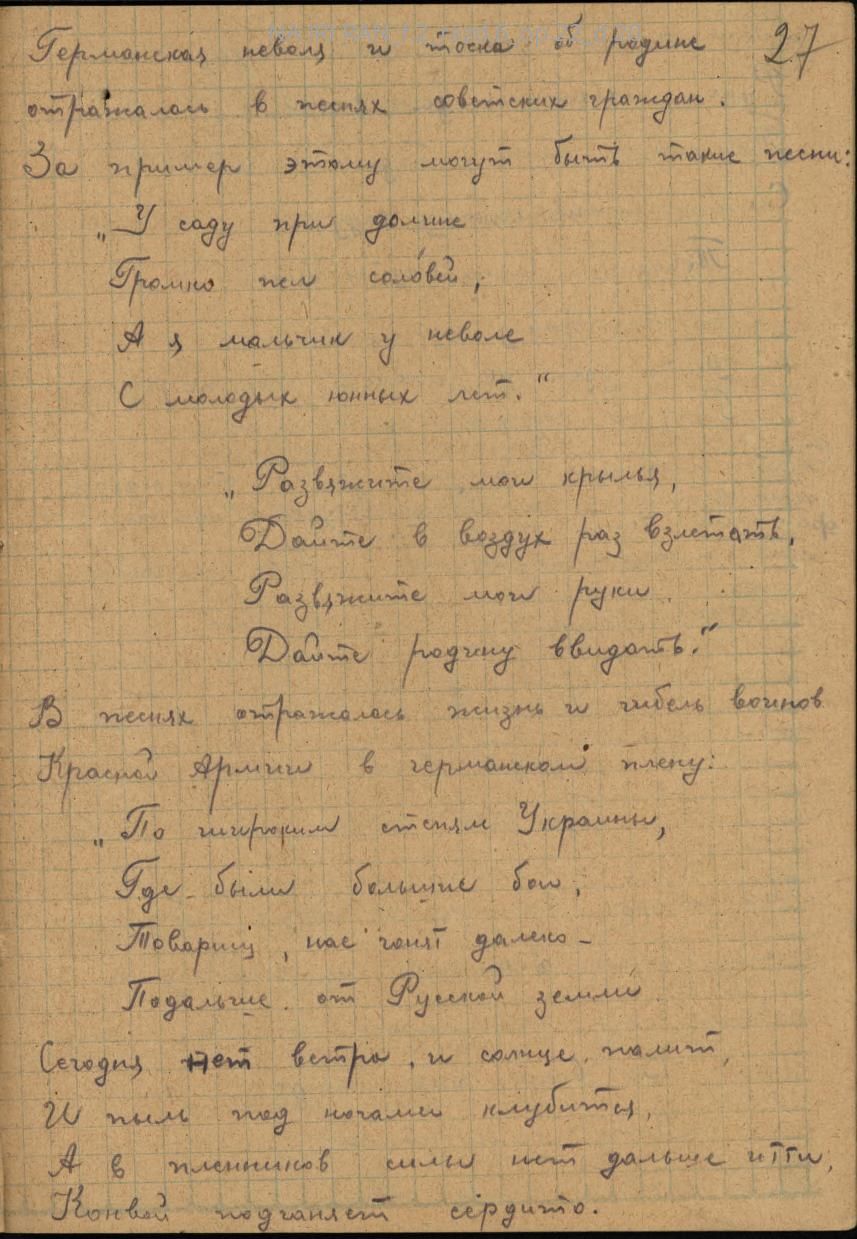 27
Германская неволя и тоска об родине
отражалась в песнях советских граждан.
За пример этому могут быть такие песни:
„У саду при долине
Громко пел соловей,
А я мальчик у неволе
С молодых юнных лет."
„Развяжите мои крылья,
Дайте в воздух раз взлетать,
Развяжите мои руки
Дайте родину ввидать."
В песнях отражалась жизнь и гибель воинов
Красной Армии в германском плену:
„По широким степям Украины,
Где были большие бои,
Товарищ, нас гонят далеко –
Подальше от Русской земли
Сегодня нет ветра, и солнце палит,
И пыль под ногами клубится,
А в пленников силы нет дальше итти,
Конвой подганяет сердито.